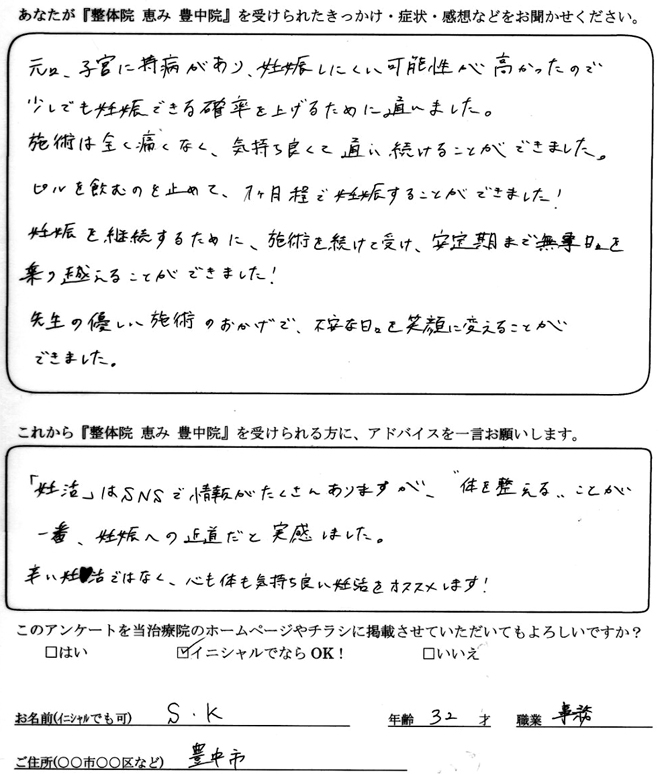 あなたが『整体院 恵み 豊中院』を受けられたきっかけ・症状・感想などをお聞かせください。
元々、子宮に持病があり、妊娠しにくい可能性が高かったので
少しでも妊娠できる確率を上げるために通いました。
施術は全く痛くなく、気持ち良くて通い続けることができました。
ピルを飲むのを止めて、1ヶ月程で妊娠することができました!
妊娠を継続するために、施術を続けて受け、安定期まで無事日々を
乗り越えることができました!
先生の優しい施術のおかげで、不安な日々を笑顔に変えることが
できました。
これから『整体院 恵み 豊中院』を受けられる方に、アドバイスを一言お願いします。
「妊活」はSNSで情報がたくさんありますが、“体を整える„ことが
一番、妊娠への近道だと実感しました。
辛い妊活ではなく、心も体も気持ち良い妊活をオススメします!
このアンケートを当治療院のホームページやチラシに掲載させていただいてもよろしいですか?
□はい ☑イニシャルでならOK! □いいえ
お名前(イニシャルでも可) S・K 年齢 32 才 職業 事務
ご住所(〇〇市〇〇区など) 豊中市